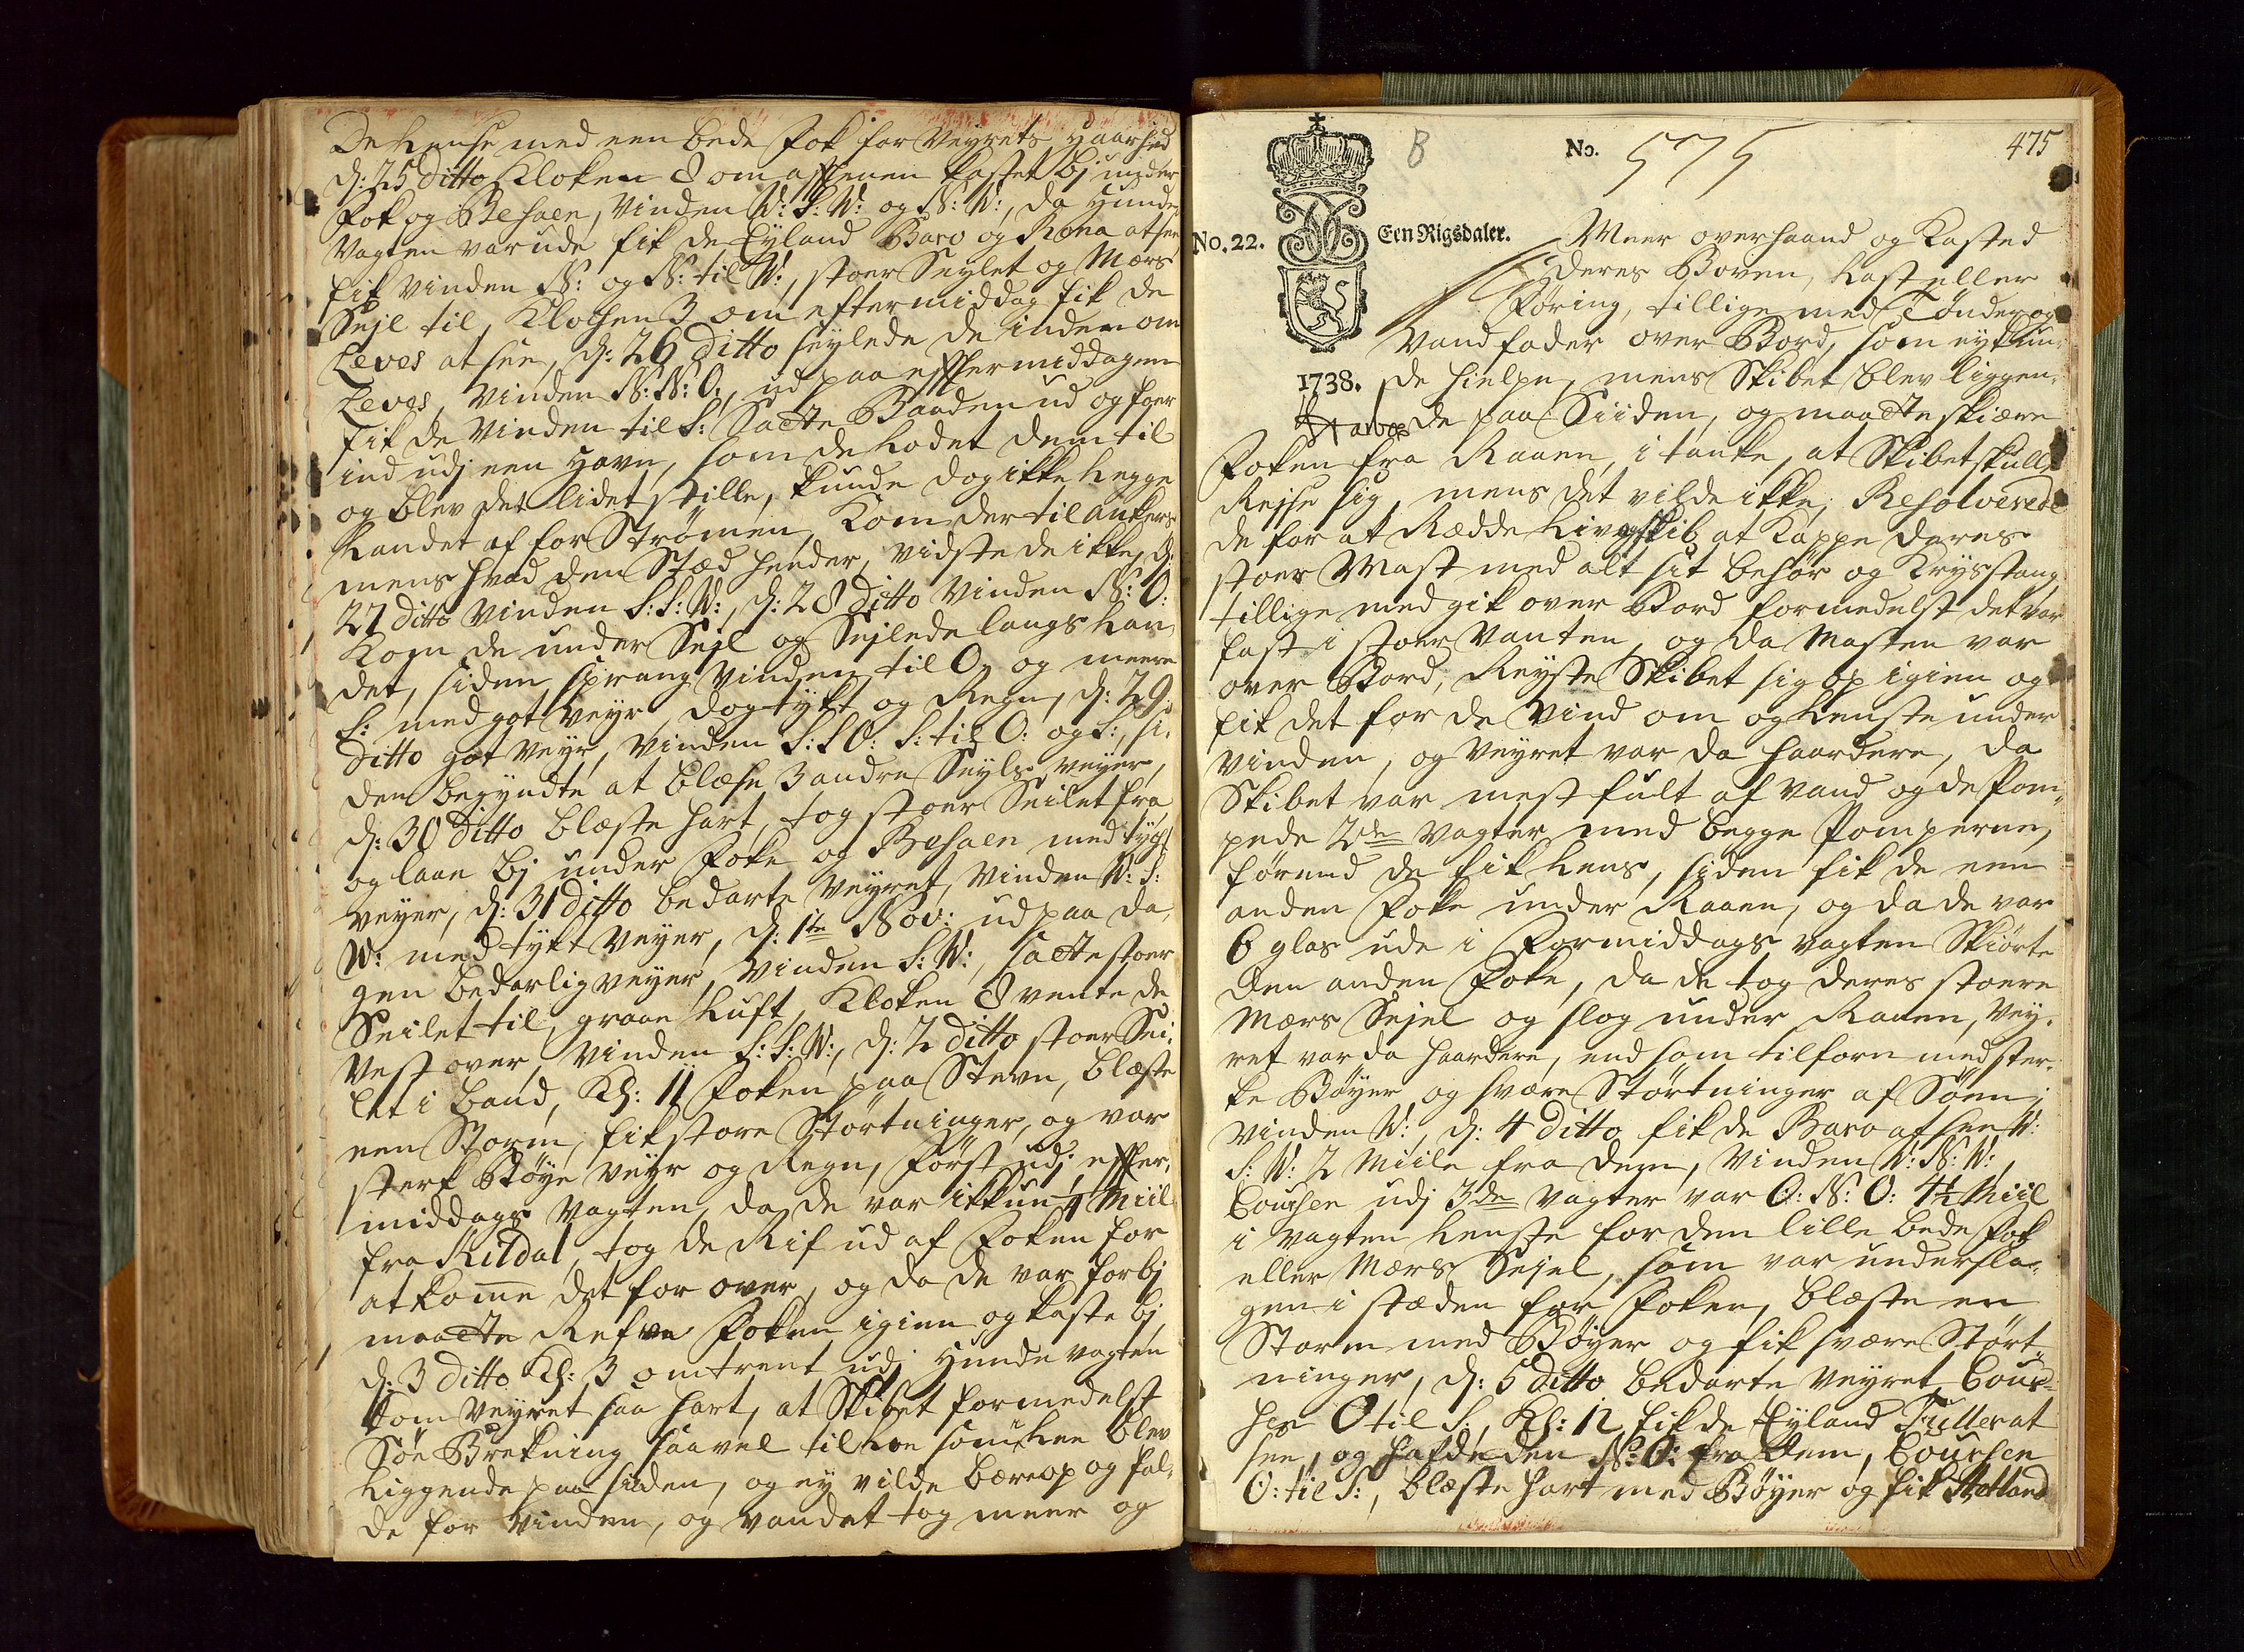 De lense med een bede Fok for Veyrets Haarhed
d: 25 ditto Kloken 8 om afftenen kastet bj under
Fok og Besaen, Vinden W: S: W: og N: W:, da Hunde
Vagten var ude fik de Eyland Baro og Rona at see
fik Vinden N: og N: til W:, stoer Seylet og Mers
Sejl til, Klochen 3 om eftermiddag fik de
Leves at see, d: 26 ditto seylede de inden om
Leves, Vinden N: N: O:, ud paa effter middagen
fik de Vinden til S: Sadte Baaden ud og foer
ind udj een Havn, som de Lodset dem til
og blev det lidet stille, kunde dog ikke legge
Landet af for Strømen, Kom der til ankers
mens hvad den Stæd heeder, vidste de ikke, d:
27 ditto Vinden S: S: W:, d: 28 ditto Vinden N: O:
Kom de under Sejl og Sejlede langs Lan-
det, siden sprang Vinden til O: og meere
S: med got Veyr, dog tykt og Regn, d: 29
ditto got Veyr, Vinden S: S O: S: til O: og S:, si-
den begyndte at blæse 3 andre Seyls veyer,
d: 30 ditto blæste hart, tog stoer Seilet fra,
og laae bj under Foke og Besaen med tygt
veyer, d: 31 ditto bedarte Veyret, Vinden W: S:
W: med tykt Veyer, d: 1te Nov: ud paa Da-
gen bedarlig veyer, Vinden S: W:, sadte stoer
Seilet til, graae Luft, Kloken 8 vente de
Vest over, Vinden S: S: W:, d: 2 ditto stoer Sei-
let i Baand, Kl: 11 Foken paa Stevn, blæste
een Storm, fik store Størtninger, og var
sterk Bøye Veyr og Regn, først udj effter-
middags Vagten, da de var ikkun 4 Miil
fra Kildal, tog de Rif ud af Foken for
at kome det for over, og da de var forbj
maadte Refve Foken igien og kaste bj
d: 3 ditto Kl: 3 omtrent udj Hunde vagten
kom Veyret saa hart, at Skibet formedelst
Søe Brekning saavel til Loe som i Lee blev
liggende paa siiden, og ey vilde bære op og fal-
de for Vinden, og Vandet tog meer og
B No. 575 475
No. 22. Een Rigsdaler.
Meer overhaand og Kasted
deres Boven, Last eller
Føring, tillige med Tønder og
Vandfader over Bord, som ey kun-
1738. de hielpe, mens Skibet blev liggen-
de paa Siiden, og maadte skiære
Foken fra Raaen, i tanke, at Skibet skulle
Rejse sig, mens det vilde ikke; Resolverede
de for at Rædde Liv og skib at Kappe deres
stoer Mast med alt sit behør og Krysstang
tillige med gik over Bord formedelst det var
fast i stoer Vanten, og da Masten var
over Bord, Reyste Skibet sig op igien og
fik det for de Vind om og Lenste under
Vinden, og Veyret var da haardere, da
Skibet var mest fult af vand og de Pom-
pede 2de Vagter med begge Pomperne,
førend de fik Lens, siden fik de een
anden Foke under Raaen, og da de var
6 glas ude i Formiddags vagten Skiørte
den anden Foke, da de tog deres stoere
Mers Sejel og slog under Raaen, Vey-
ret var da haardere, end som tilforn med ster-
ke Bøyer og svære Størtninger af Søen;
Vinden W:, d: 4 ditto fik de Baro at see W:
S: W: 2 Miile fra dem, Vinden W: N: W:,
Coursen udj 3de Vagter var O: N: O: 4½ Miil
i Vagten lenste for den lille bede Fok
eller Mers Sejel, som var undersla-
gen i stæden for Foken, blæste en
Storm med Bøyer og fik svære Stört-
ninger, d: 5 ditto bedarte Veyret Cour-
sen O til S:, Kl: 12 fik de Eyland Fullerat
see, og hafde den N: O: fra dem, Coursen
O: til S:, blæste hart med Bøyer og fik Hetland